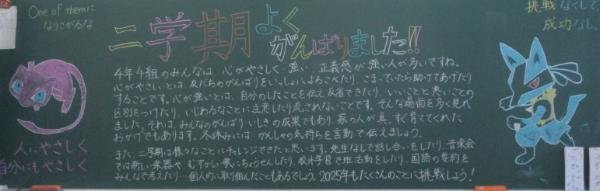 One of themに
なりさがるな
二学期よく
がんばりました!!
挑戦なくして
成功なし。
4年4組のみんなは、心がやさしく、強い、正義感が強い人が多いですね。
心がやさしいとは、友だちのがんばりをいっしょによろこべたり、こまっていたら助けてあげたり
することです。心が強いとは、自分のしたことを伝え反省できたり、いいことと悪いことの
区別をつけたり、いじわるなことに注意したり流されないことです。そんな場面を多く見れ
ました。それは、みんなのがんばりいしきの成果でもあり、家の人が真っすぐ育ててくれた
おかげでもあります。冬休みには、かんしゃの気持ちを言動で伝えましょう。
また、二学期は様々なことにチャレンジできたと思います。先生なしで話し合いをしたり、音楽会
では新しい楽器やむずかしい歌にちょうせんしたり、校外学習で班活動をしたり、国語の要約を
みんなで考えたり…個人的に取り組んだこともあるでしょう。2025年もたくさんのことに挑戦しよう!
人にやさしく
自分にもやさしく